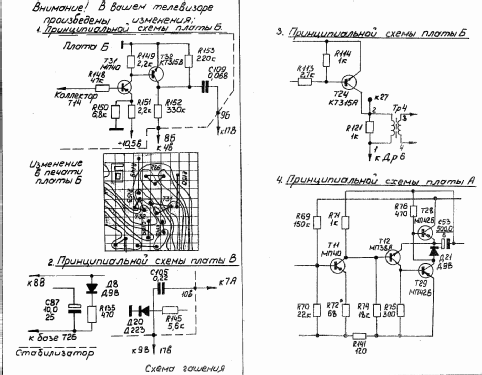 Внимание! В вашем телевизоре
произведены изменения:
1. Принципиальной схемы платы Б.
Плата Б
R149
2,2к
Т32
КТ315В
R153
220к
Т31
МП40
R148
47к
Коллектор
Т14
С109
0,068
R150
6,8к
R151
2,2к
R152
330к
-10,5В
8Б
к 4Б
9Б
к 17В
Изменение
в печати
платы Б
2. Принципиальной схемы платы В
к 8В
С87
10,0
25
Д8
Д9В
R135
470
к базе Т26
Стабилизатор
С105
0,22
10Б
к 7А
Д20
Д223
R145
5,6к
к 9В
17В
Схема гашения
3. Принципиальной схемы платы Б
R114
1к
R113
2,7к
Т24
КТ315А
к 27
Тр4
R121
1к
2
3
1
4
к Др 6
4. Принципиальной схемы платы А
R69
150к
R71
1к
Т11
МП40
Т12
МП38А
R76
470
Т28
МП42Б
С53
500,0
Д21
Д9В
Т29
МП42Б
R70
22к
R72*
68
R74
18к
R75
300
R141
120